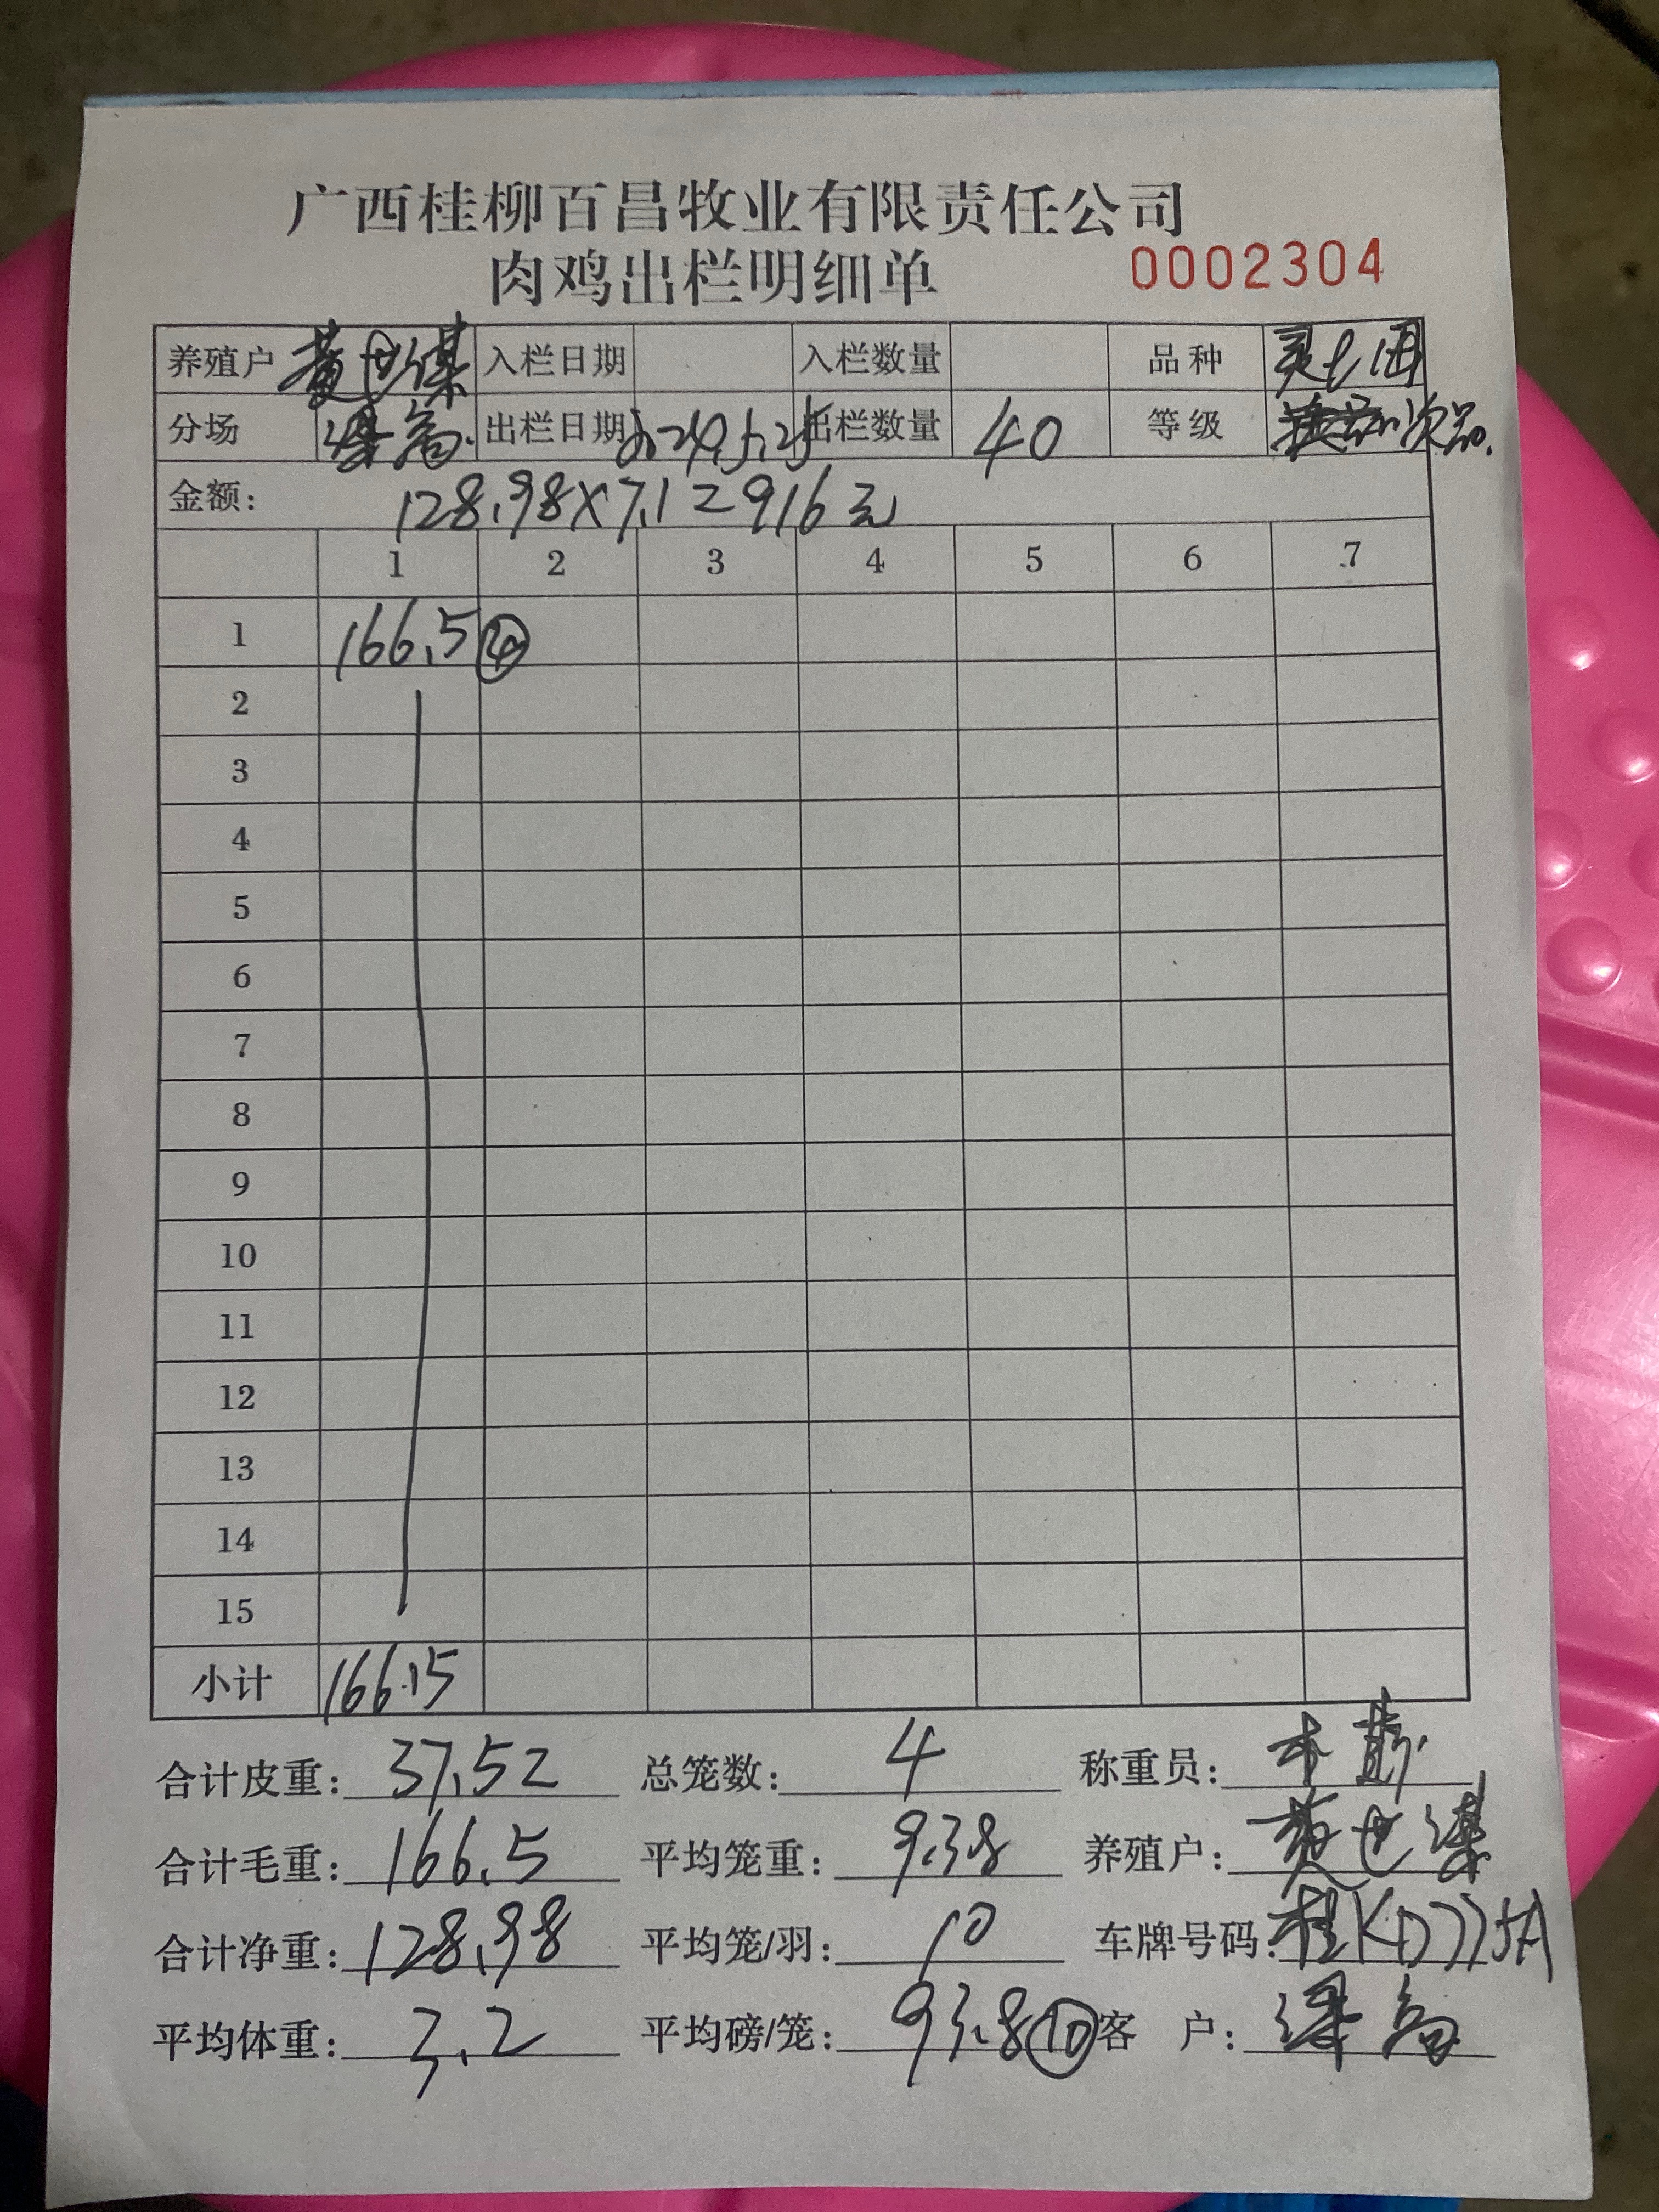 广西桂柳百昌牧业有限责任公司
肉鸡出栏明细单 0002304
养殖户 黄世谋 入栏日期 入栏数量 品种
分场 梁高 出栏日期 出栏数量 40 等级 次品.
金额: 128.98×7.1=916元
1 2 3 4 5 6 7
1 166.5 ㊵
2
3
4
5
6
7
8
9
10
11
12
13
14
15
小计 166.5
合计皮重: 37.52 总笼数: 4 称重员:
合计毛重: 166.5 平均笼重: 9.38 养殖户: 黄世谋
合计净重: 128.98 平均笼/羽: 10 车牌号码: 桂KD775A
平均体重: 3.2 平均磅/笼: 93.8 ⑩ 客 户: 梁高